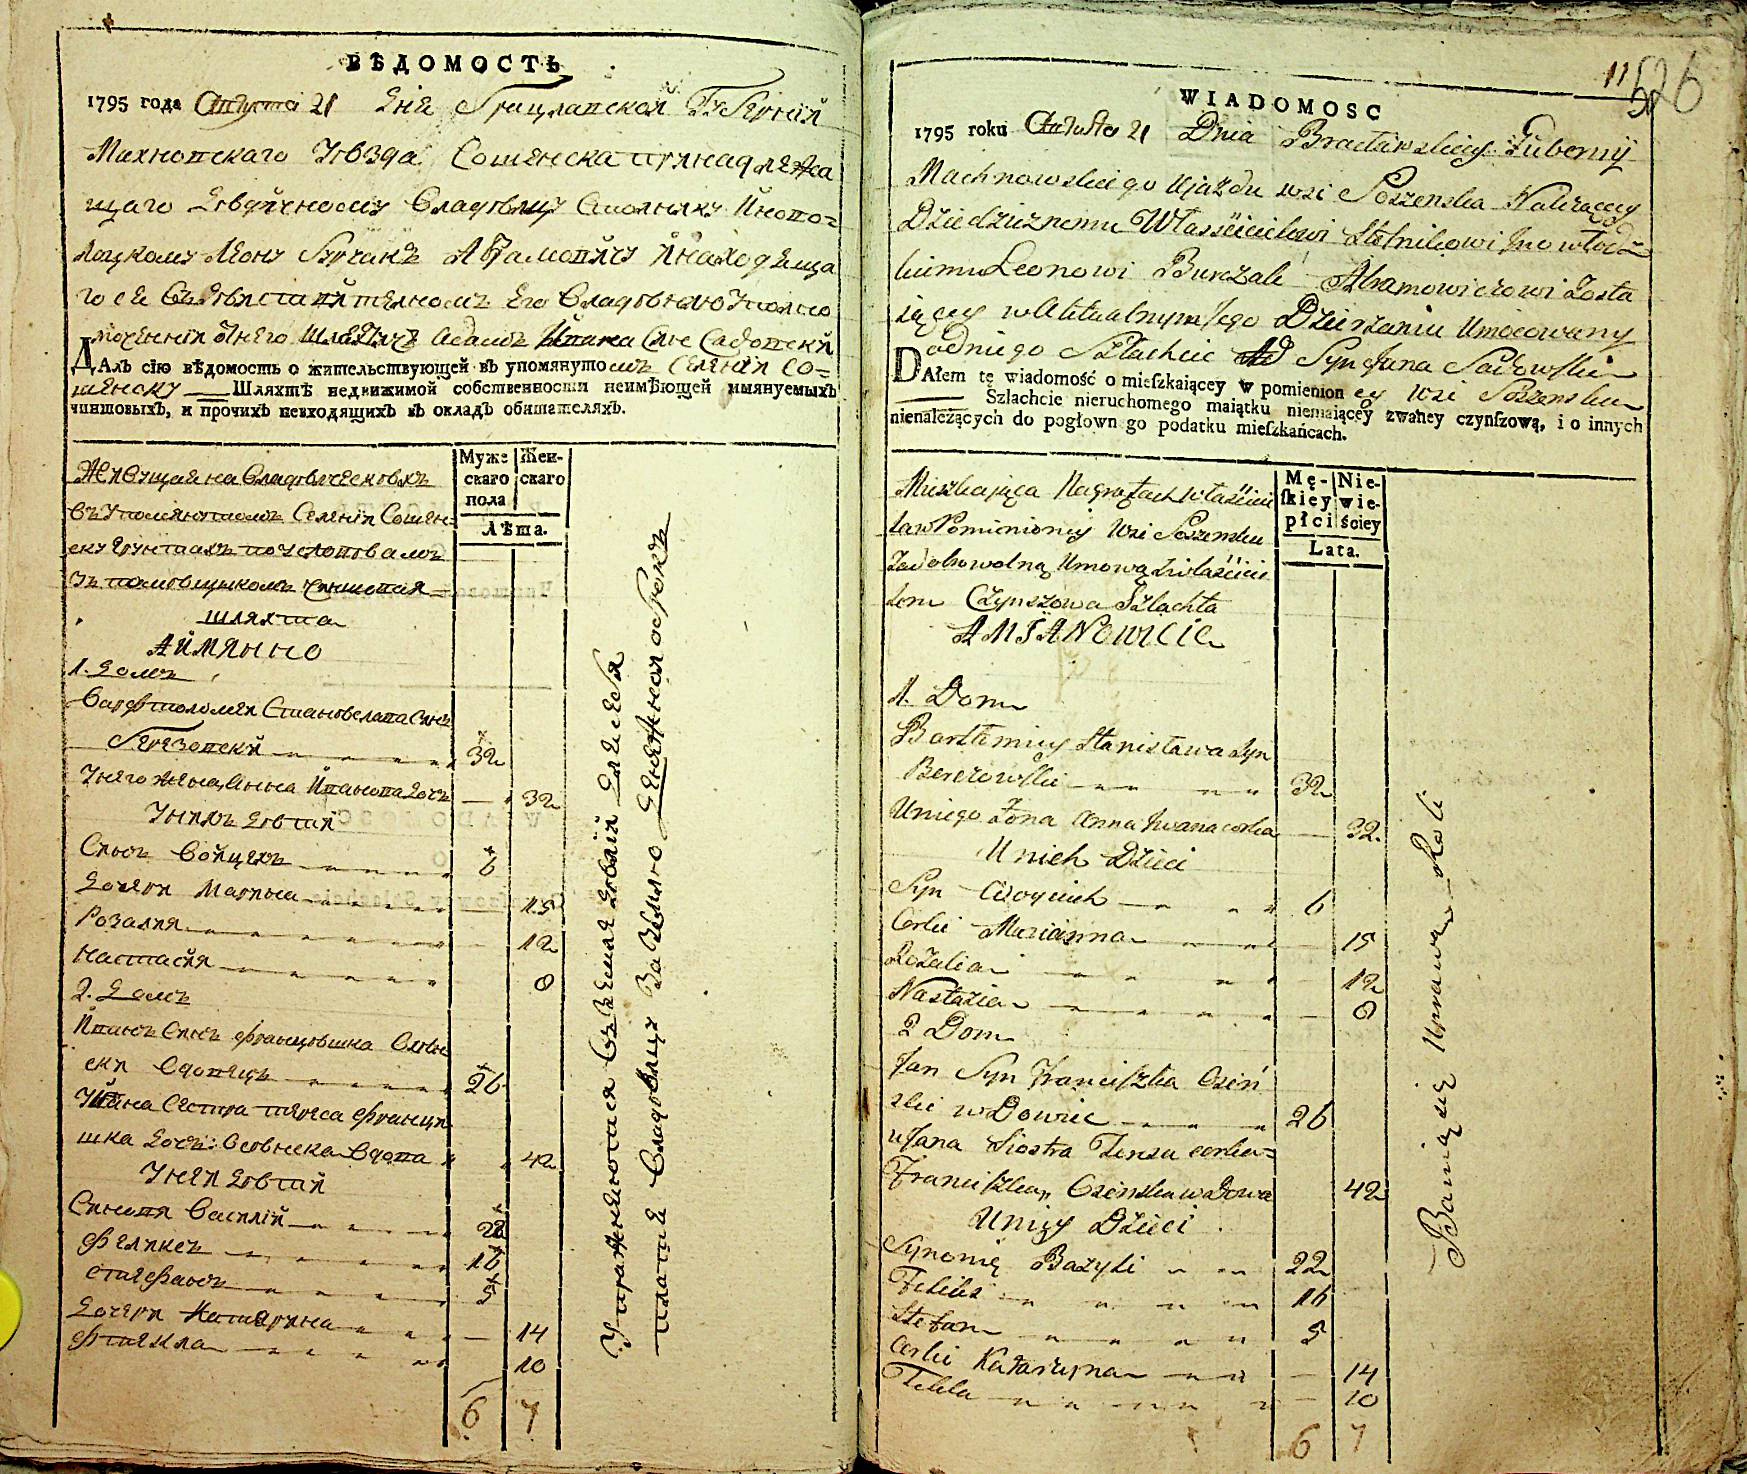 ВѢДОМОСТЬ
1795 года Августа 21 дня Брацлавской Губерній
Махновскаго Уѣзда Сошенска принадлежа
щаго Дѣдичному Владѣлцу Столнику Иново-
лоцкому Леону Бурчакъ Абрамовичу и находяща
гося въ Его Владѣнію уполно
моченній Шляхтичъ Адамъ Ивана Сынъ Садовскй
ДАлъ сію вѣдомость о жительствующей въ упомянутомъ Селеніи Со=
шенску Шляхтѣ недвижимой собственности неимѣющей имянуемыхъ
чиншовыхъ, и прочихъ невходящихъ въ окладъ обитателяхъ.
Муже
скаго
пола
Жен-
скаго
Лѣта.
Живущая на Владѣлческовхъ
въ Упомянютомъ Селенія Сошен-
ску Грунтахъ по условѣамъ
зъ помѣщикомъ чиншовая
шляхта
АИМЯННО
1. Домъ
Варфтоломей Станѣслава Сынъ
Березовскй 32
Унего Жена Анна Иванова дочь 32
Унихъ дѣтій
Сынъ Войцехъ 6
Дочери Марына 15
Розалия 12
Настасія 8
2. Домъ
Иванъ Сынъ Францѣшка Осѣн
ски Вдовецъ 26
У Ивана Сестра тереса Францы
шка дочъ: Осѣнска Вдова 42
Унея дѣтий
Синовя Василій 22
Феликсъ 16
Стефанъ 5
Дочери Катерина 14
Фтекла 10
6 7
Упражнюются въ Земле дѣлій для себя
плате Владѣлцу За Землю Денежной оброкъ
11
526
WIADOMOSC
1795 roku Augusta 21 Dnia Bracławskiey Gubernÿ
Machnowskiego Ujazdu wsi Soszenska Należącey
Dziedzicznemu Właścicielowi Stolnikowi Inowłodz
kiemu Leonowi Burczak Abramowiczowi Zosta
iącey w Aktualnym Jego Dzierżaniu Umocowany
odniego Szlachcic Ad Syn Jana Sadowski
DAłem tę wiadomość o mieſzkaiącey w pomienioney wsi Soszensku
Szlachcie nieruchomego maiątku niemaiącey zwaney czynſzową, i o innych
nienależących do pogłownego podatku mieſzkańcach.
Mę-
ſkiey
płci
Nie-
wie-
ściey
Lata.
Mieszkająca Na gruntach właścicie
la w Pomienioney Wsi Soszensku
Za dobrowolną Umową z właścicie
lem Czynszowa Szlachta
AMIANOWICIE
1. Dom
Bartłomiey Stanisława Syn
Berezowski 32
Uniego Żona Anna Iwana corka 32
Unich Dzieci
Syn Woyciech 6
Corki Marianna 15
Rozalia 12
Nastazia 8
2 Dom
Jan Syn Franciſzka Osiń
ski wDowiec 26
u Jana Siostra Teresa corka
Franciſzka Osinska wDowa 42
Uniey Dzieci
Synowie Bazyli 22
Felix 16
Stefan 5
Corki Katarzyna 14
Tekla 10
6 7
Bawią się Uprawą Roli